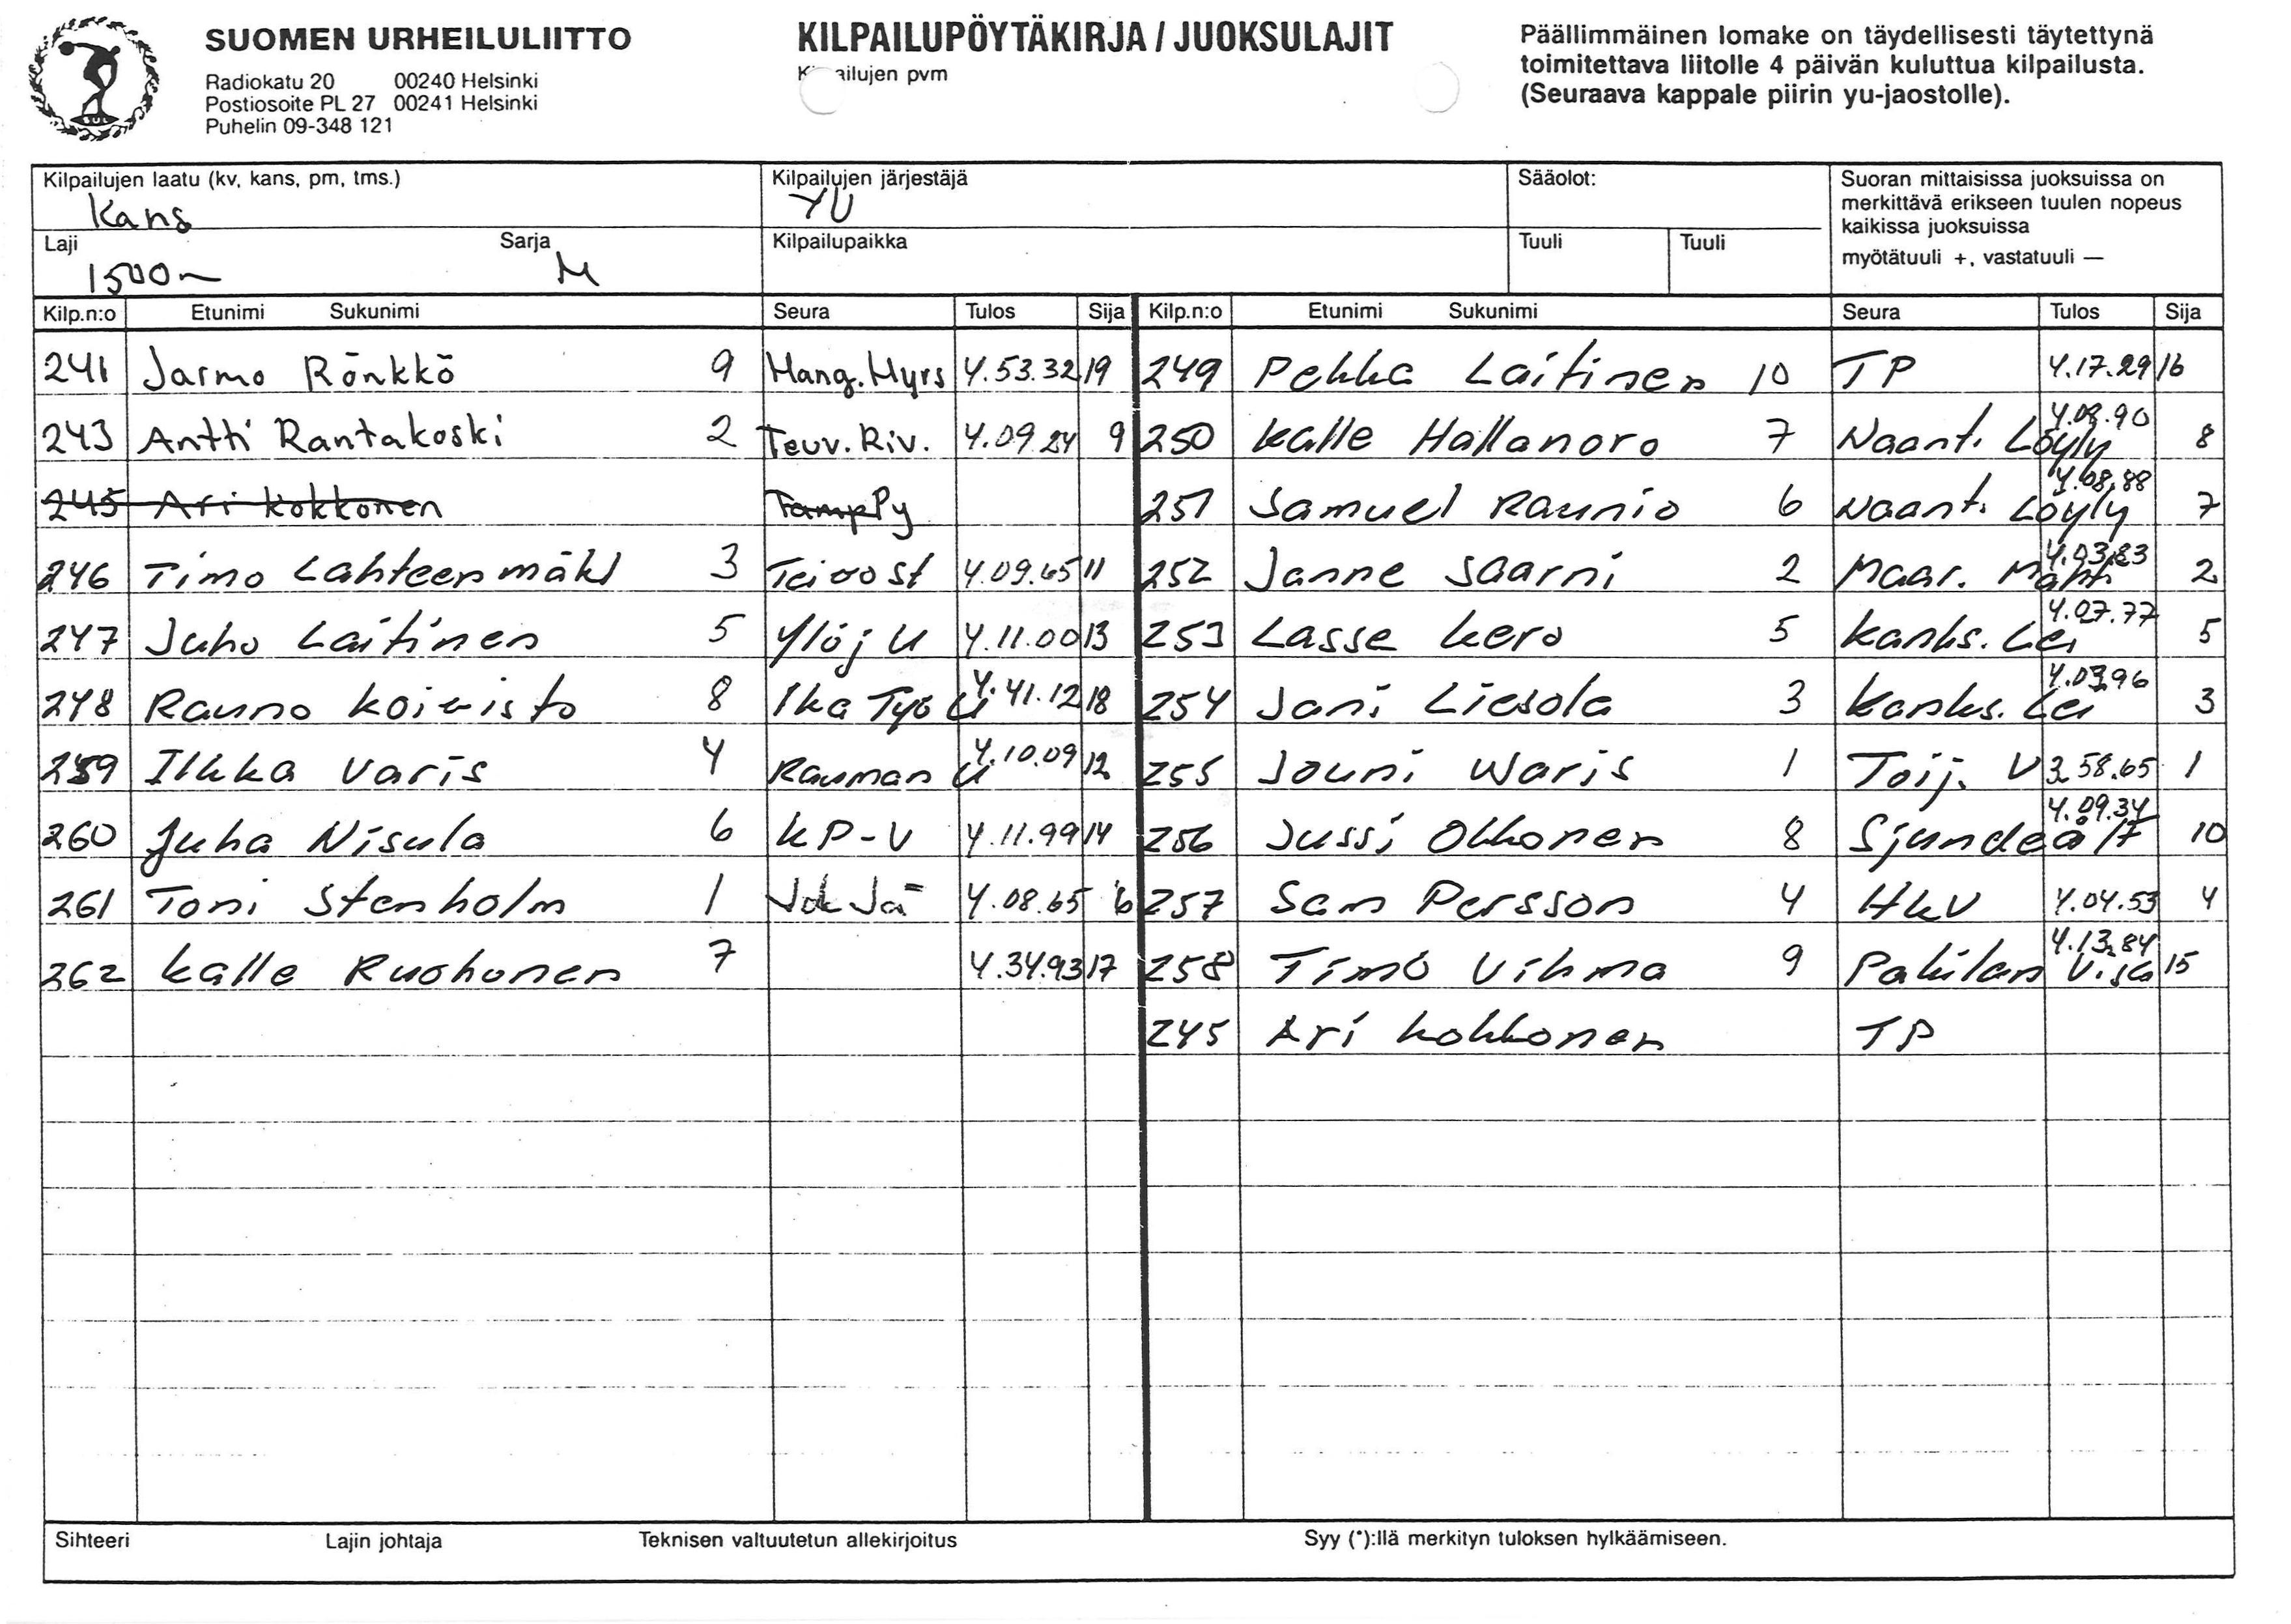 SUOMEN URHEILULIITTO
Radiokatu 20 00240 Helsinki
Postiosoite PL 27 00241 Helsinki
Puhelin 09-348 121
KILPAILUPÖYTÄKIRJA / JUOKSULAJIT
pvm
Päällimmäinen lomake on täydellisesti täytettynä
toimitettava liitolle 4 päivän kuluttua kilpailusta.
(Seuraava kappale piirin yu-jaostolle).
Kilpailujen laatu (kv, kans, pm, tms.)
Kans
Kilpailujen järjestäjä
YU
Sääolot:
Suoran mittaisissa juoksuissa on
merkittävä erikseen tuulen nopeus
kaikissa juoksuissa
myötätuuli +, vastatuuli —
Laji Sarja
1500m M
Kilpailupaikka
Tuuli Tuuli
Kilp.n:o Etunimi Sukunimi Seura Tulos Sija Kilp.n:o Etunimi Sukunimi Seura Tulos Sija
241 Jarmo Rönkkö 9 Hang. Hyrs 4.53.32 19 249 Pekka Laitinen 10 TP 4.17.29 16
243 Antti Rantakoski 2 Teuv. Riv. 4.09.24 9 250 Kalle Hallanoro 7 Naant. Löyly 4.08.90 8
245 Ari Kokkonen TampPy 251 Samuel Raunio 6 Naant. Löyly 4.08.88 7
246 Timo Lahteenmäki 3 4.09.65 11 252 Janne Saarni 2 Maar. Mahti 4.03.83 2
247 Juho Laitinen 5 Ylöj U 4.11.00 13 253 Lasse Kero 5 Kanks. Lei 4.07.77 5
248 Rauno Koivisto 8 Ika Työ U 4.41.12 18 254 Jani Liesola 3 Kanks. Lei 4.03.96 3
259 Ilkka Varis 4 Rauman U 4.10.09 12 255 Jouni Waris 1 Toij. V 3.58.65 1
260 Juha Nisula 6 KP-V 4.11.99 14 256 Jussi Okkonen 8 Sjundeå If 4.09.34 10
261 Toni Stenholm 1 4.08.65 6 257 Sam Persson 4 HKV 4.04.53 4
262 Kalle Ruohonen 7 4.34.93 17 258 Timo Vihma 9 Pakilan 4.13.84 15
245 Ari Kokkonen TP
Sihteeri Lajin johtaja Teknisen valtuutetun allekirjoitus Syy (*):llä merkityn tuloksen hylkäämiseen.